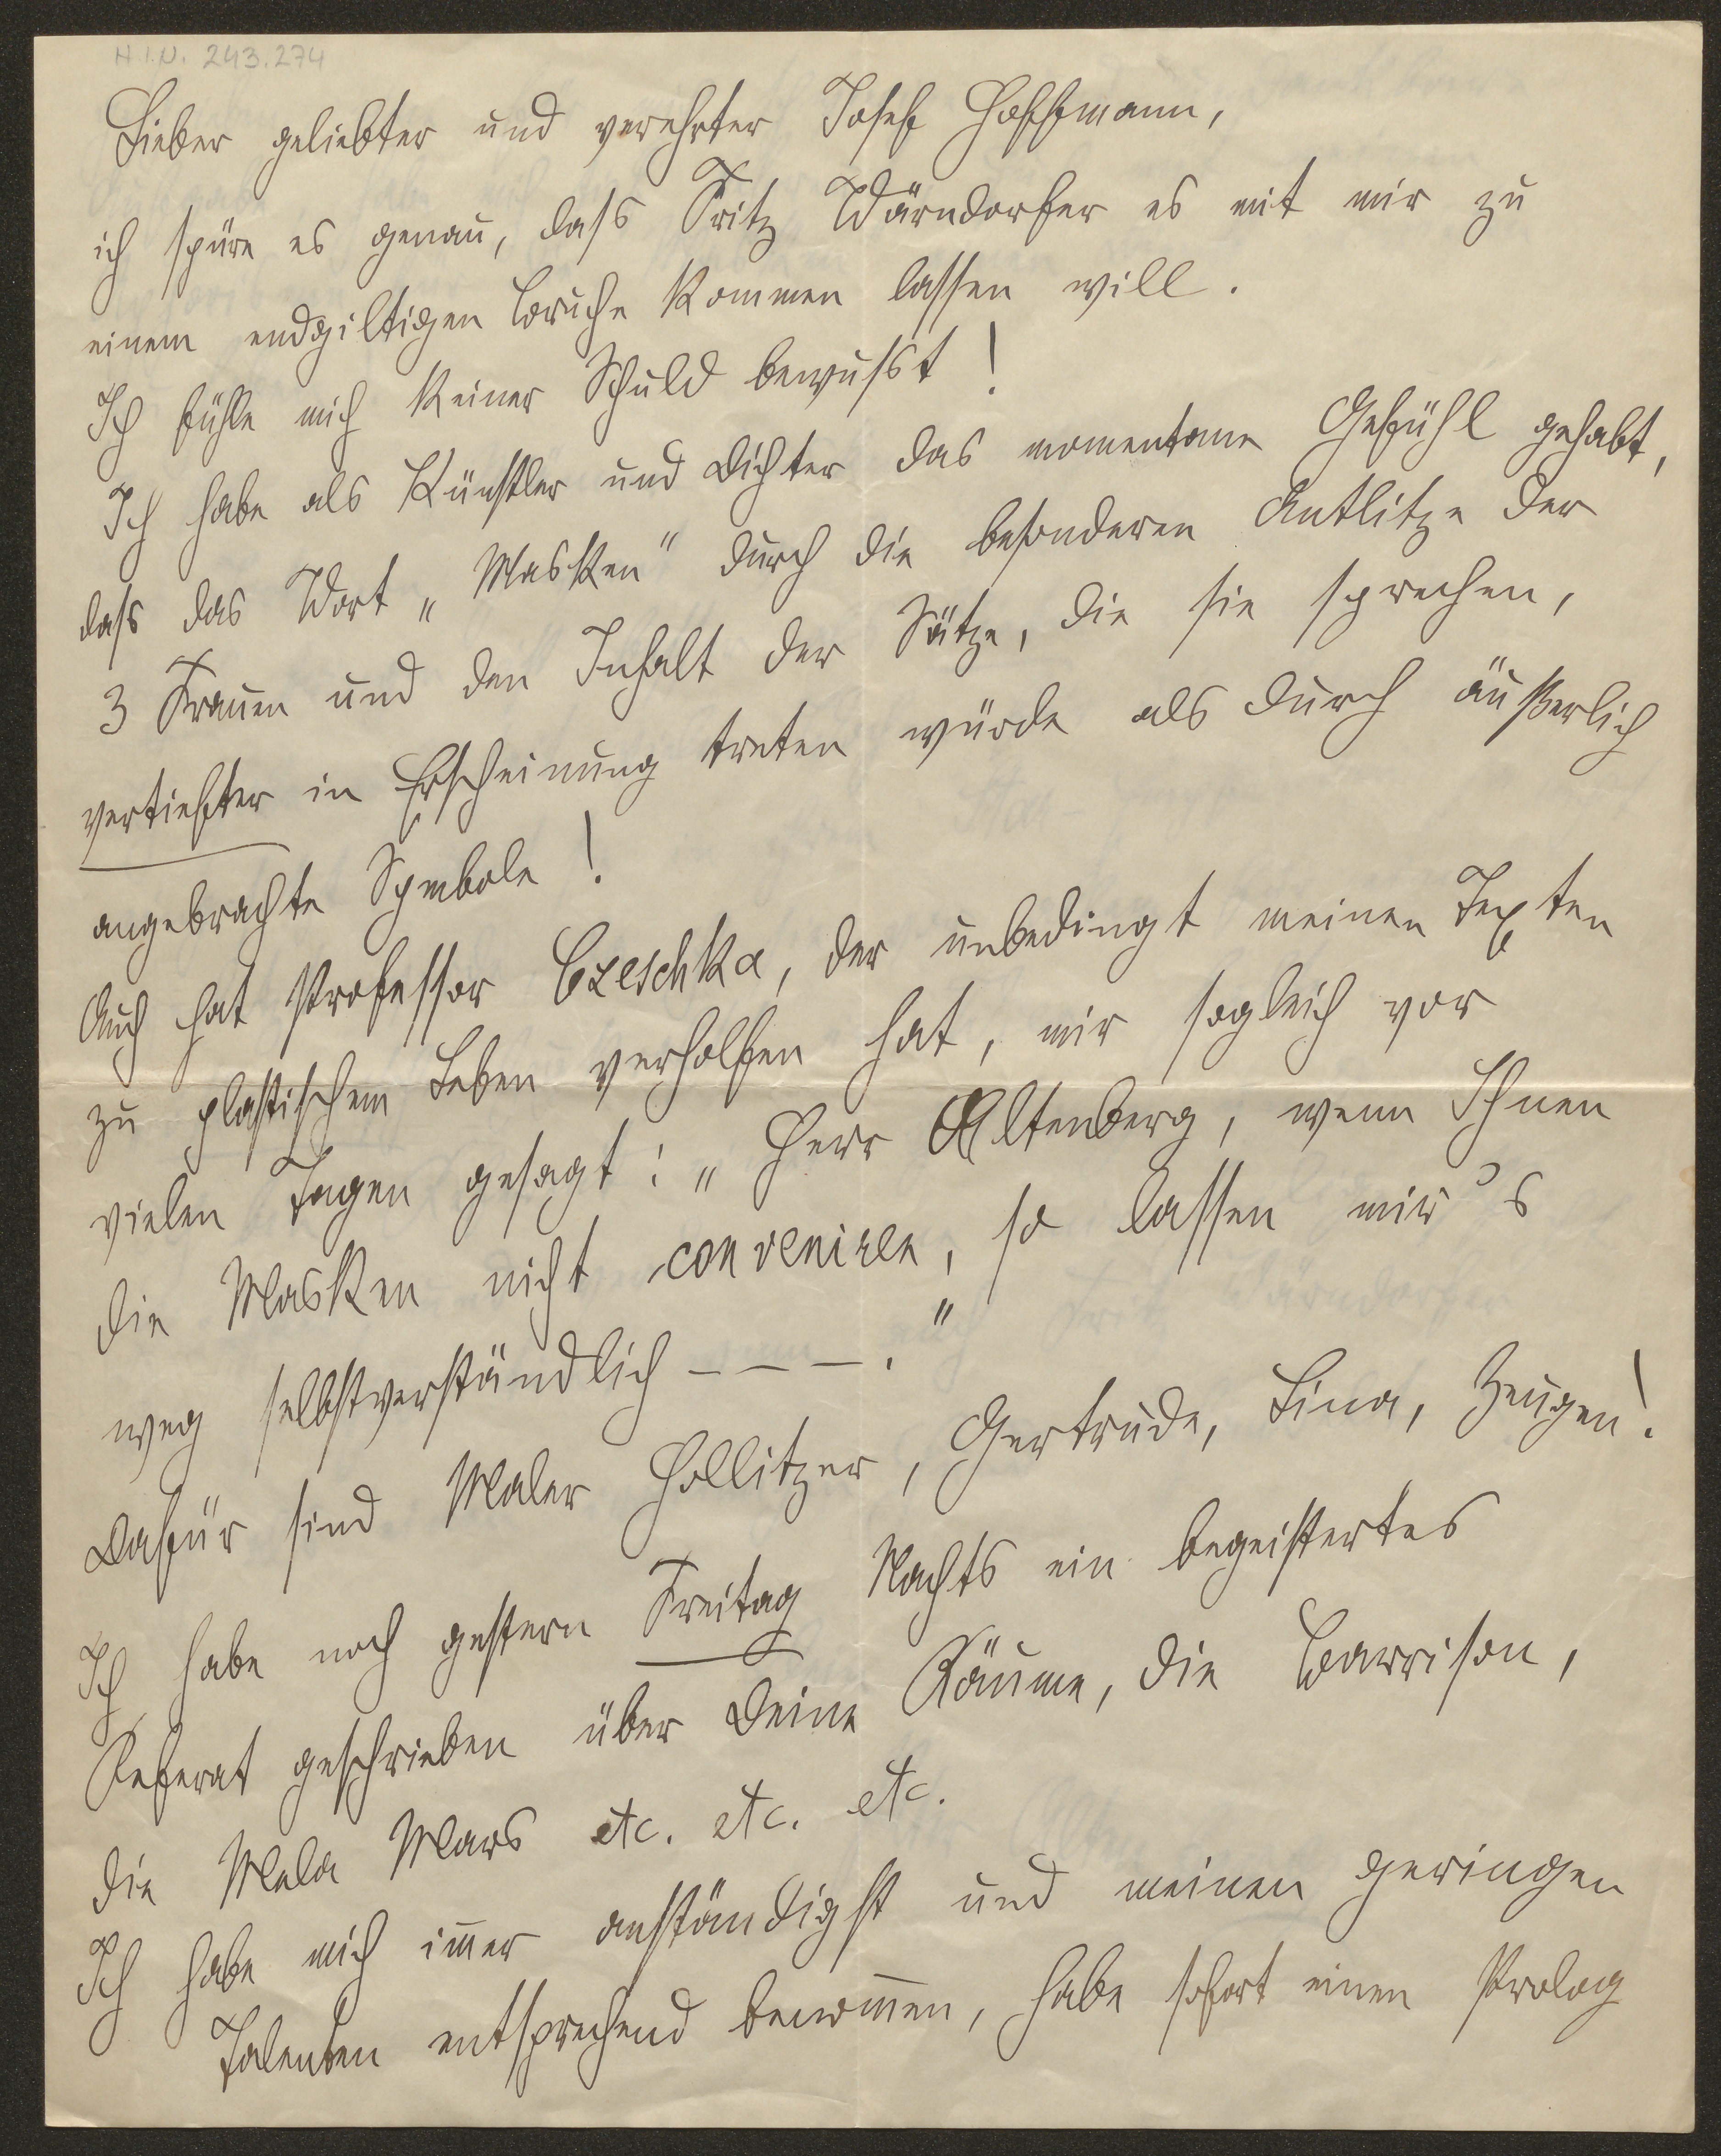 H.I.N. 243.274
Lieber geliebter und verehrter Josef Hoffmann,
ich spüre es genau, dass Fritz Wärndorfer es mit mir zu
einem endgiltigen Bruche kommen lassen will.
Ich fühle mich keiner Schuld bewusst!
Ich habe als Künstler und Dichter das momentane Gefühl gehabt,
dass das Wort „Masken" durch die besonderen Antlitze der
3 Frauen und den Inhalt der Sätze, die sie sprechen,
vertiefter in Erscheinung treten würde als durch äußerlich
angebrachte Symbole!
Auch hat Professor Czeschka, der unbedingt meinen Texten
zu plastischem Leben verholfen hat, mir sogleich vor
vielen Tagen gesagt: „Herr Altenberg, wenn Ihnen
die Masken nicht conveniren, so lassen wir's
weg selbstverständlich – – –."
Dafür sind Maler Hollitzer, Gertrude, Lina, Zeugen!
Ich habe noch gestern Freitag Nachts ein begeistertes
Referat geschrieben über Deine Räume, die Barrison,
die Mela Mars etc. etc. etc.
Ich habe mich im̅er anständigst und meinen geringen
Talenten entsprechend benom̅en, habe sofort einen Prolog